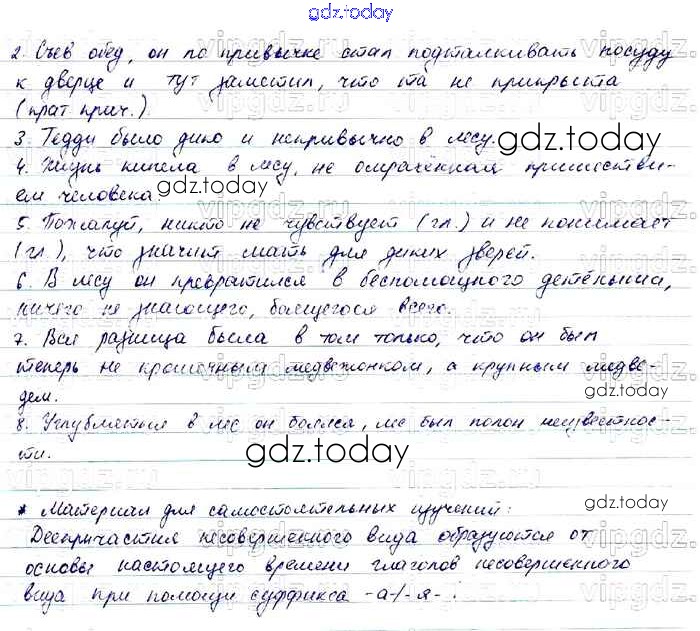 gdz.today
2. Съев обед, он по привычке стал подталкивать посуду
к дверце и тут заметил, что та не прикрыта
(крат. прич.).
3. Тедди было дико и непривычно в лесу.
gdz.today
4. Жизнь кипела в лесу, не омрачённая пришестви-
ем человека.
gdz.today
5. Пожалуй, никто не чувствует (гл.) и не понимает
(гл.), что значит мать для диких зверей.
6. В лесу он превратился в беспомощного детёныша,
ничего не знающего, боящегося всего.
7. Вся разница была в том только, что он был
теперь не крошечным медвежонком, а крупным медве-
дем.
gdz.today
8. Углубляться в лес он боялся, лес был полон неизвестнос-
ти.
gdz.today
* Материал для самостоятельных изучений:
gdz.today
Деепричастия несовершенного вида образуются от
основы настоящего времени глаголов несовершенного
вида при помощи суффикса -а-/-я- :
gdz.today